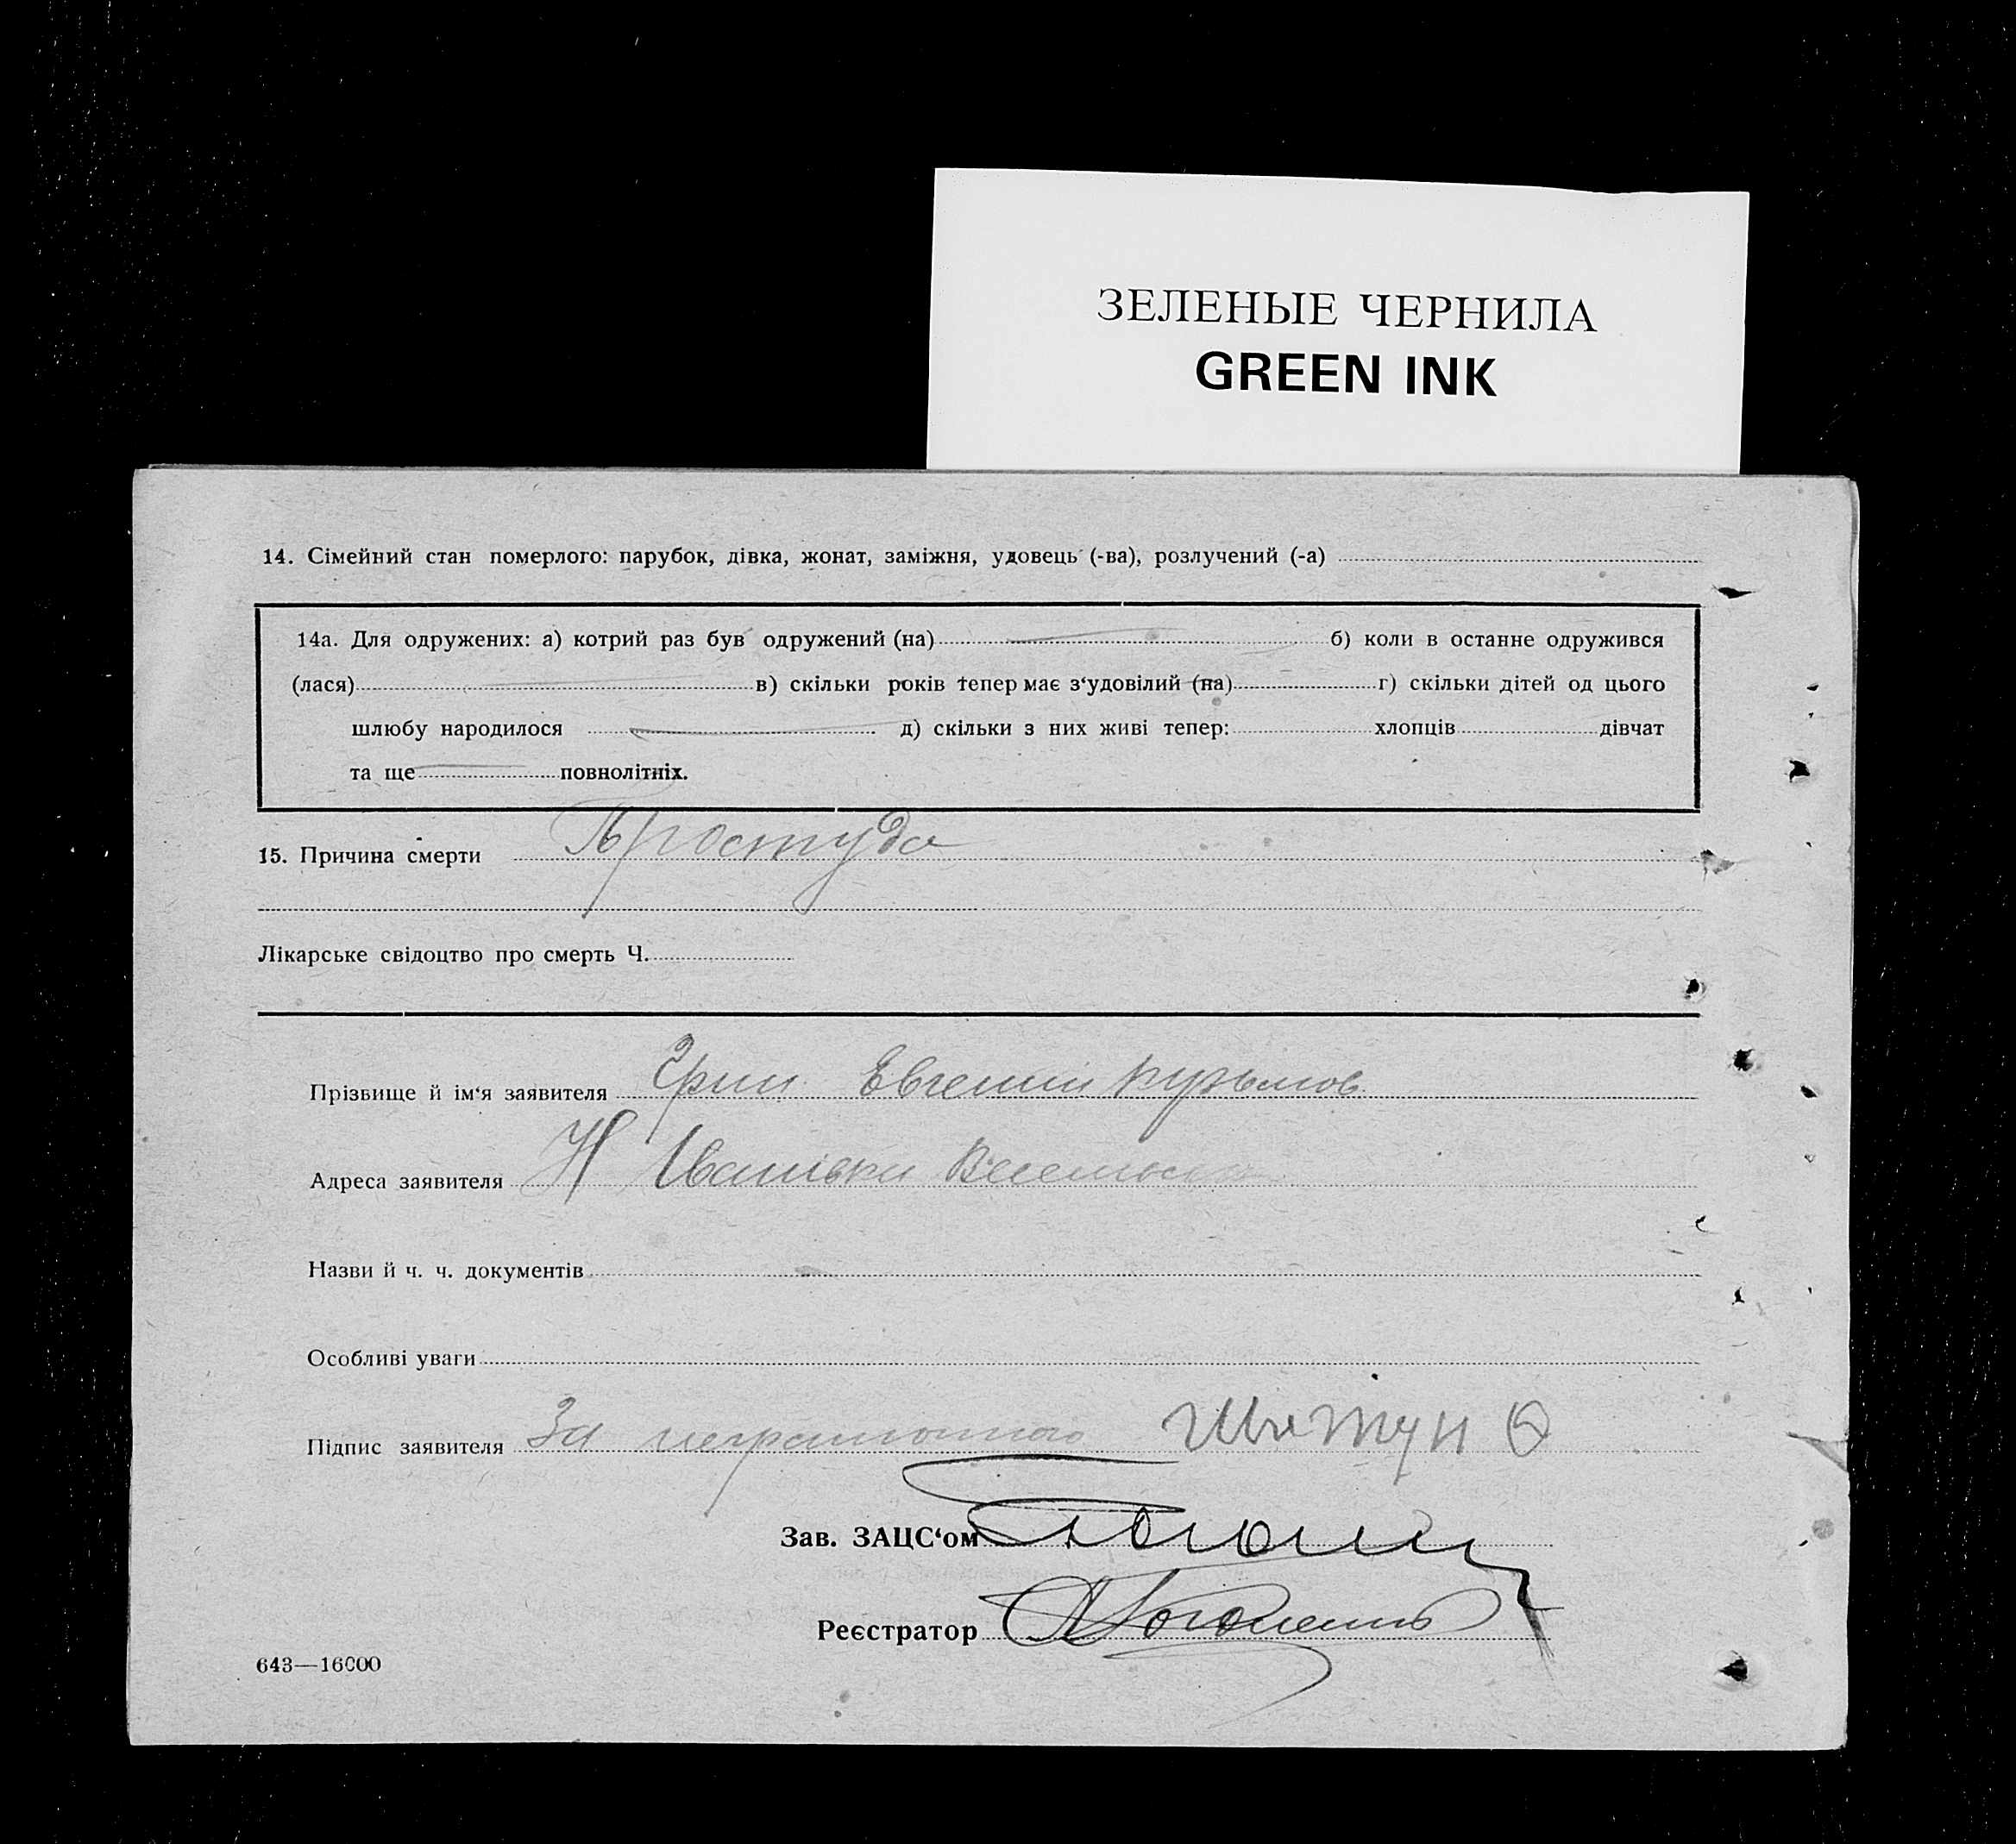 ЗЕЛЕНЫЕ ЧЕРНИЛА
GREEN INK
14. Сімейний стан померлого: парубок, дівка, жонат, заміжня, удовець (-ва), розлучений (-а)
14а. Для одружених: а) котрий раз був одружений (на) б) коли в останне одружився
(лася) в) скільки років тепер має з‘удовілий (на) г) скільки дітей од цього
шлюбу народилося д) скільки з них живі тепер: хлопців дівчат
та ще повнолітніх.
15. Причина смерти Простуда
Лікарське свідоцтво про смерть Ч.
Прізвище й ім‘я заявителя Евгений Кузьмов
Адреса заявителя Н Іванівка
Назви й ч. ч. документів
Особливі уваги
Підпис заявителя За неграмотного
Зав. ЗАЦС‘ом
Реєстратор
643—16000